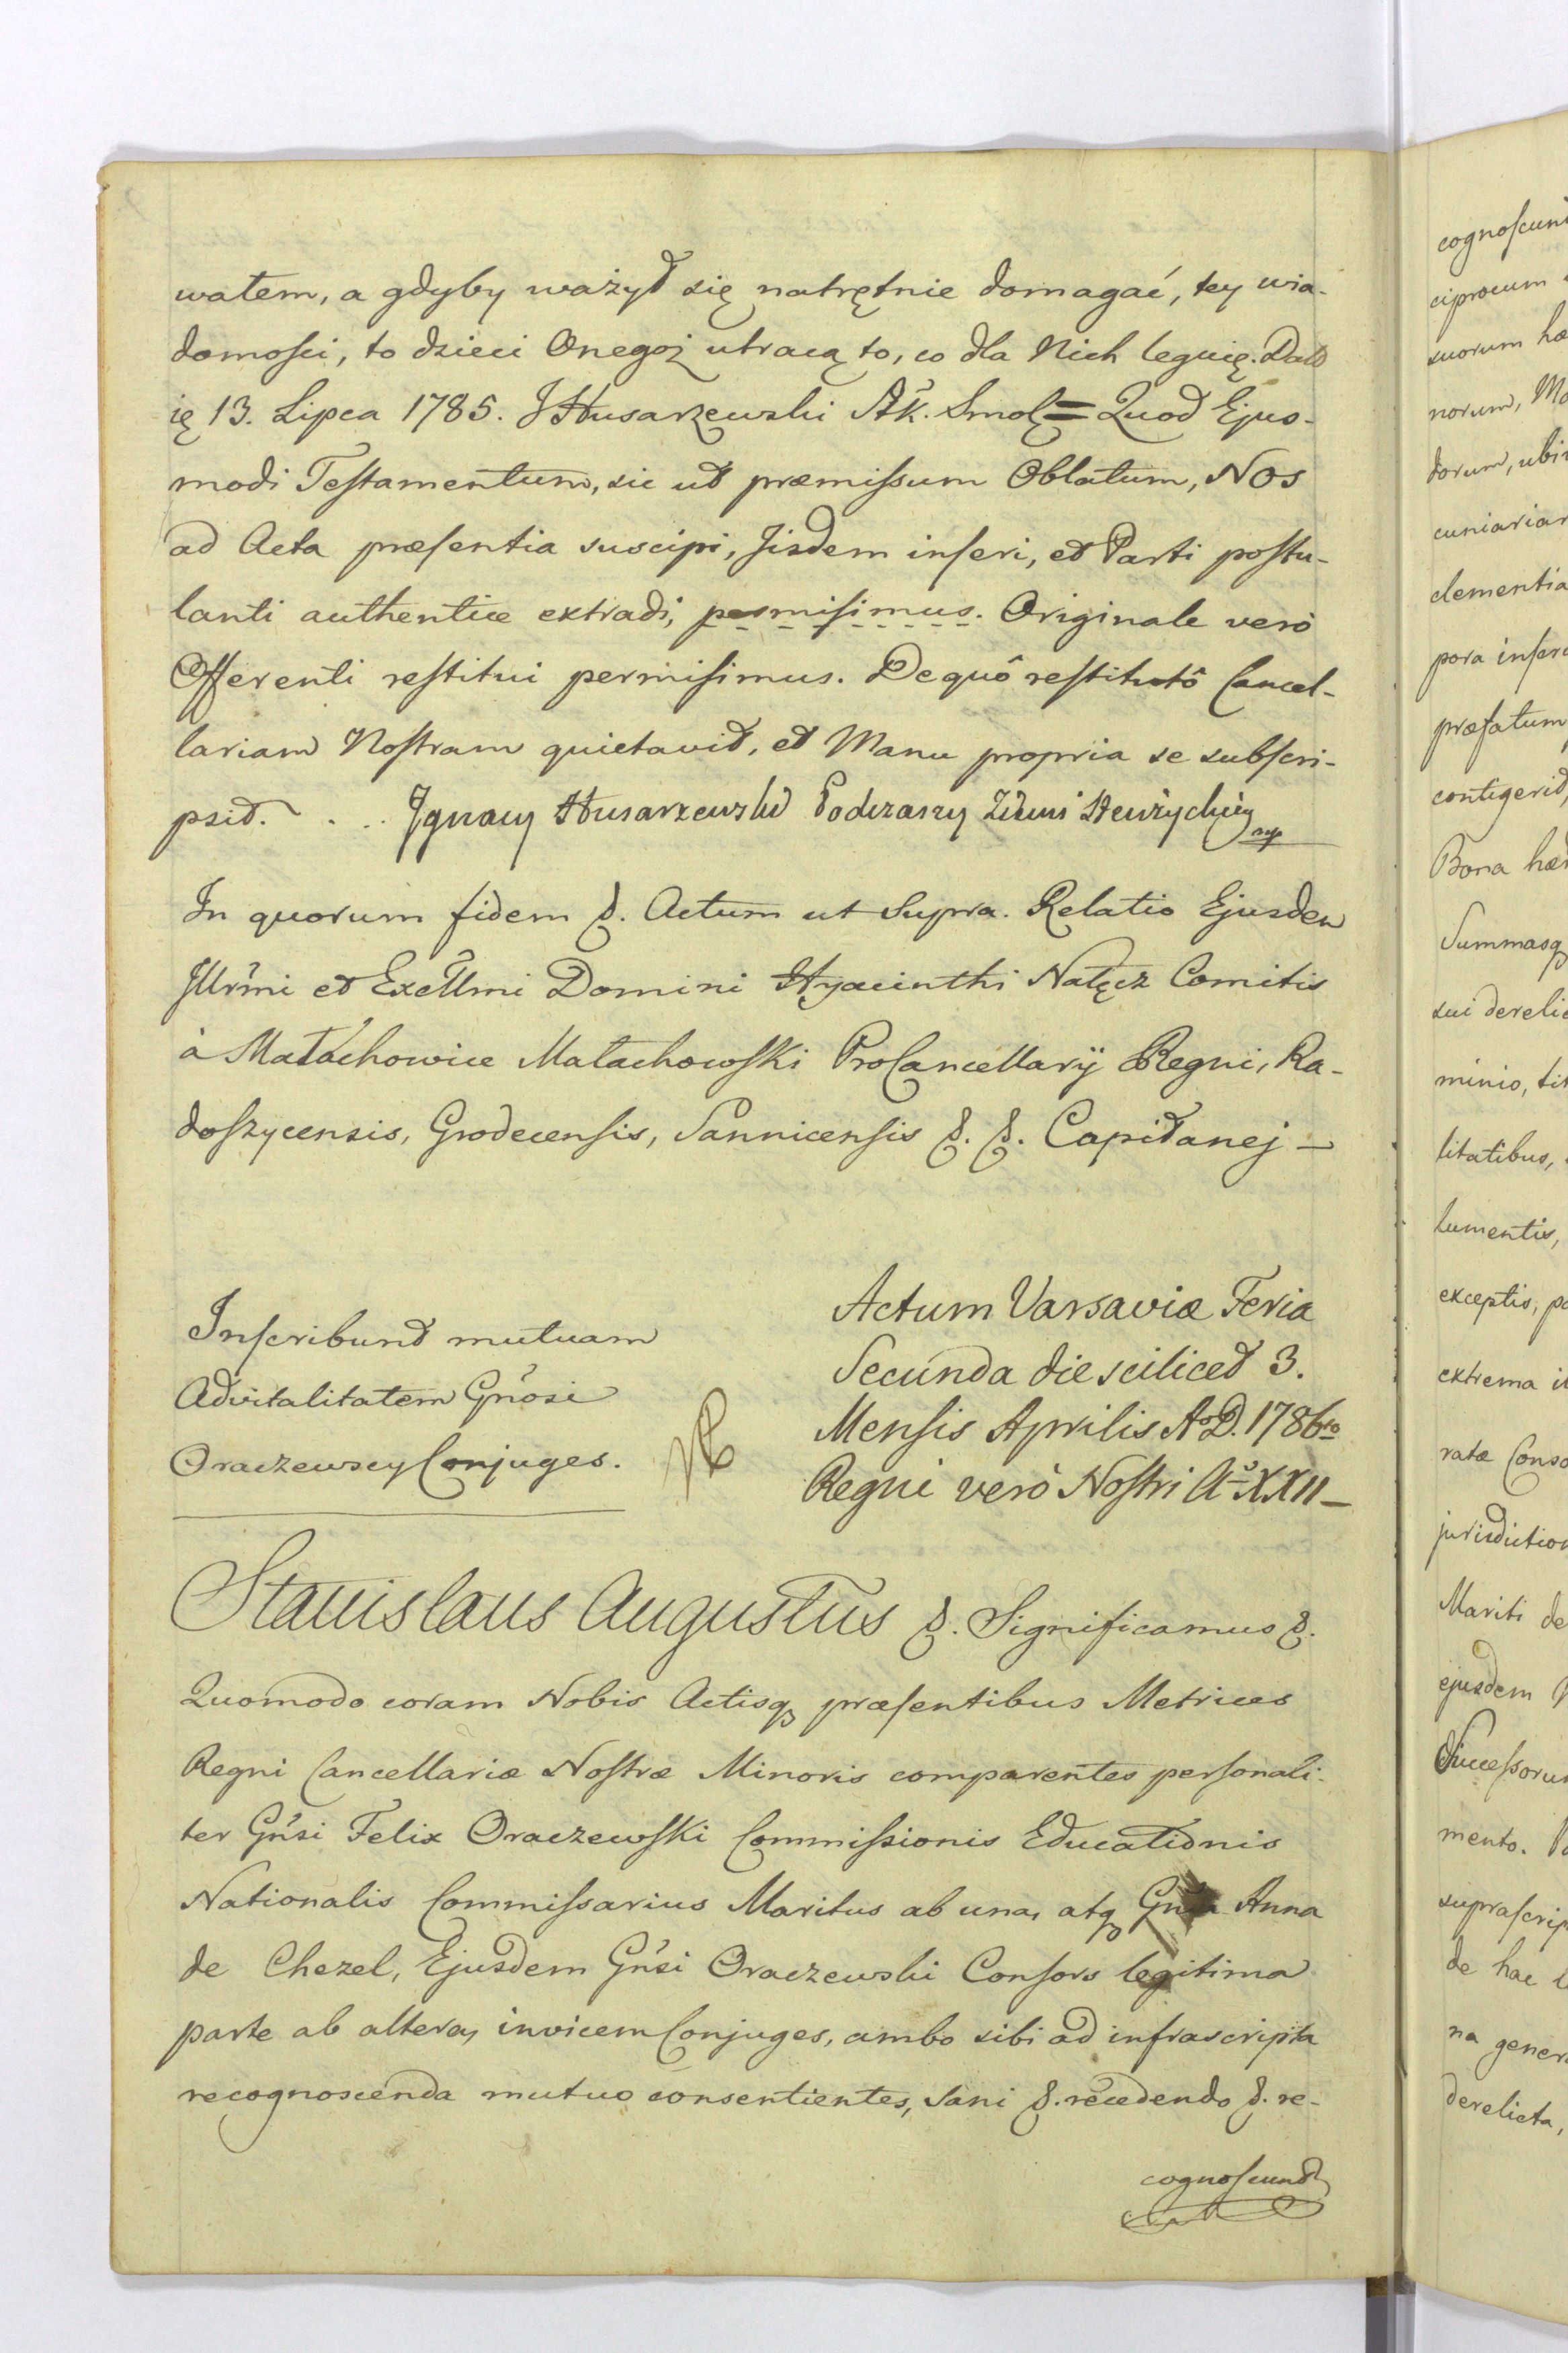 wałem, a gdyby ważył się natrętnie domagać, tey wia-
domości, to dzieci Onegoż utracą to, co dla Nich leguię. Datt
ię 13. Lipca 1785. JHusarzewski Sk. Smol = Quod Ejus-
modi Testamentum, sic ut præmissum Oblatum, Nos
ad Acta præsentia suscipi, Jisdem inseri, et Parti postu-
lanti authentice extradi, permisimus. Originale verò
Offerenti restitui permisimus. De quô restitutô Cancel-
lariam Nostram quietavit, et Manu propria se subscri-
psit. Jgnacy Husarzewski Podczaszy Ziemi
In quorum fidem &. Actum ut Supra. Relatio Ejusdem
Jllr̃mi et Excell̃mi Domini Hyacinthi Nałęcz Comitis
à Małachowice Małachowski ProCancellarij Regni, Ra-
doszycensis, Grodecensis, Sannicensis &. &. Capitanej —
Inscribunt mutuam
Advitalitatem Gñosi
Oraczewscy Conjuges.
Actum Varsaviæ Feria
Secunda die scilicet 3.
Mensis Aprilis AoD. 1786to
Regni verò Nostri Ao XXII —
Stanislaus Augustus &. Significamus &.
Quomodo coram Nobis Actisq præsentibus Metrices
Regni Cancellariæ Nostræ Minoris comparentes personali-
ter Gñsi Felix Oraczewski Commissionis Educationis
Nationalis Commissarius Maritus ab una, atq Gñsa Anna
de Chezel, Ejusdem Gñsi Oraczewski Consors legitima
parte ab altera, invicem Conjuges, ambo sibi ad infrascripta
recognoscenda mutuo consentientes, Sani &. recedendo &. re-
cognoscunt
cognoscunt
ciprocum
suorum hæ
norum, Mo
dorum, ubi
cuniariar
clementia
pora insere
præfatum
contigerit,
Bona hær
Summasq
sui derelic
minio, tit
litatibus,
lumentis,
exceptis, po
extrema
ratæ Conso
jurisdiction
Mariti de
ejusdem
Successorum
mento.
suprascrip
de hac
na genera
derelicta,